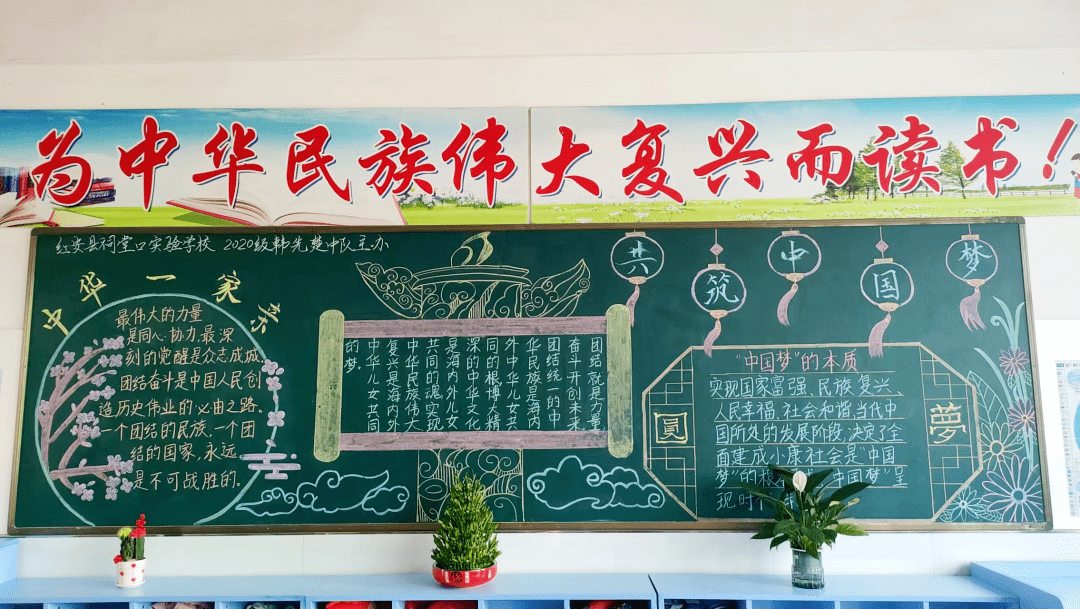 为中华民族伟大复兴而读书!
红安县祠堂口实验学校 2020级韩先楚中队主办
中华一家亲
最伟大的力量
是同心协力,最深
刻的觉醒是众志成城,
团结奋斗是中国人民创
造历史伟业的必由之路。
一个团结的民族,一个团
结的国家,永远
是不可战胜的。
团结就是力量
奋斗开创未来
团结统一的中
华民族是海内
外中华儿女共
同的根博大精
深的中华文化
是海内外儿女
共同的魂实现
中华民族伟大
复兴是海内外
中华儿女共同
的梦。
共筑中国梦
圓夢
"中国梦"的本质
实现国家富强、民族复兴、
人民幸福、社会和谐,当代中
国所处的发展阶段,决定了全
面建成小康社会是"中国
梦"的 中国梦"呈
现时